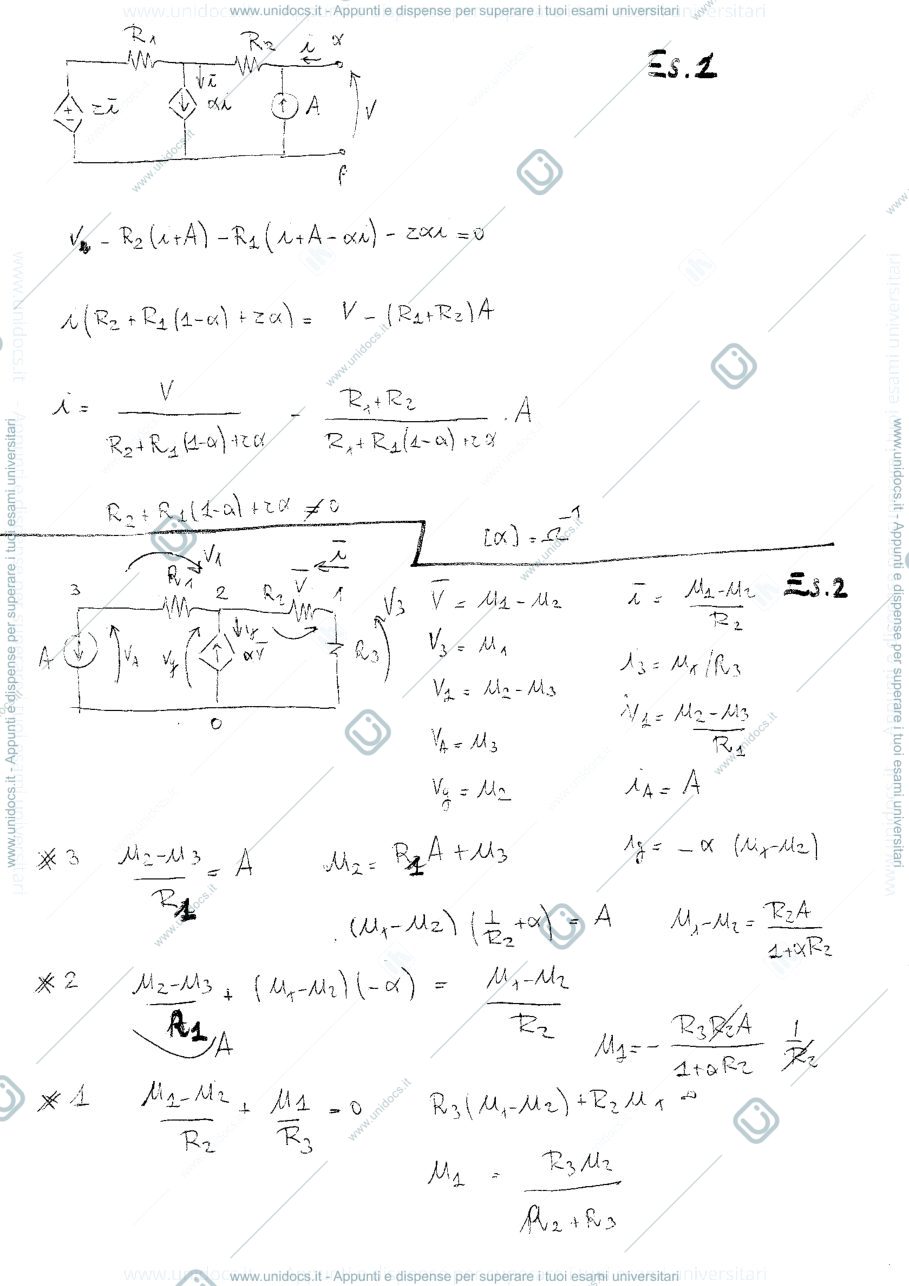 www.unidocs.it - Appunti e dispense per superare i tuoi esami universitari
Es.1
R1 R2 i α
rī ī αi A V
β
V - R2(i+A) - R1(i+A-αi) - rαi = 0
i(R2+R1(1-α)+rα) = V - (R1+R2)A
i = V / (R2+R1(1-α)+rα) - (R1+R2) / (R1+R1(1-α)+rα) · A
R2+R1(1-α)+rα ≠ 0
[α] = Ω⁻¹
Es.2
V1 ī
3 R1 2 R2 V̄ 1 V3
A VA Vg αV̄ R3
0
V̄ = u1-u2 ī = (u1-u2)/R2
V3 = u1 i3 = u1/R3
V1 = u2-u3 i1 = (u2-u3)/R1
VA = u3 iA = A
Vg = u2 ig = -α (u1-u2)
※3 (u2-u3)/R1 = A u2 = R1A+u3
(u1-u2)(1/R2+α) = A u1-u2 = R2A/(1+αR2)
※2 (u2-u3)/R1 + (u1-u2)(-α) = (u1-u2)/R2
A
u1 = - R3R2A/(1+αR2) 1/R2
※1 (u1-u2)/R2 + u1/R3 = 0 R3(u1-u2)+R2u1 = 0
u1 = R3u2/(R2+R3)
www.unidocs.it - Appunti e dispense per superare i tuoi esami universitari